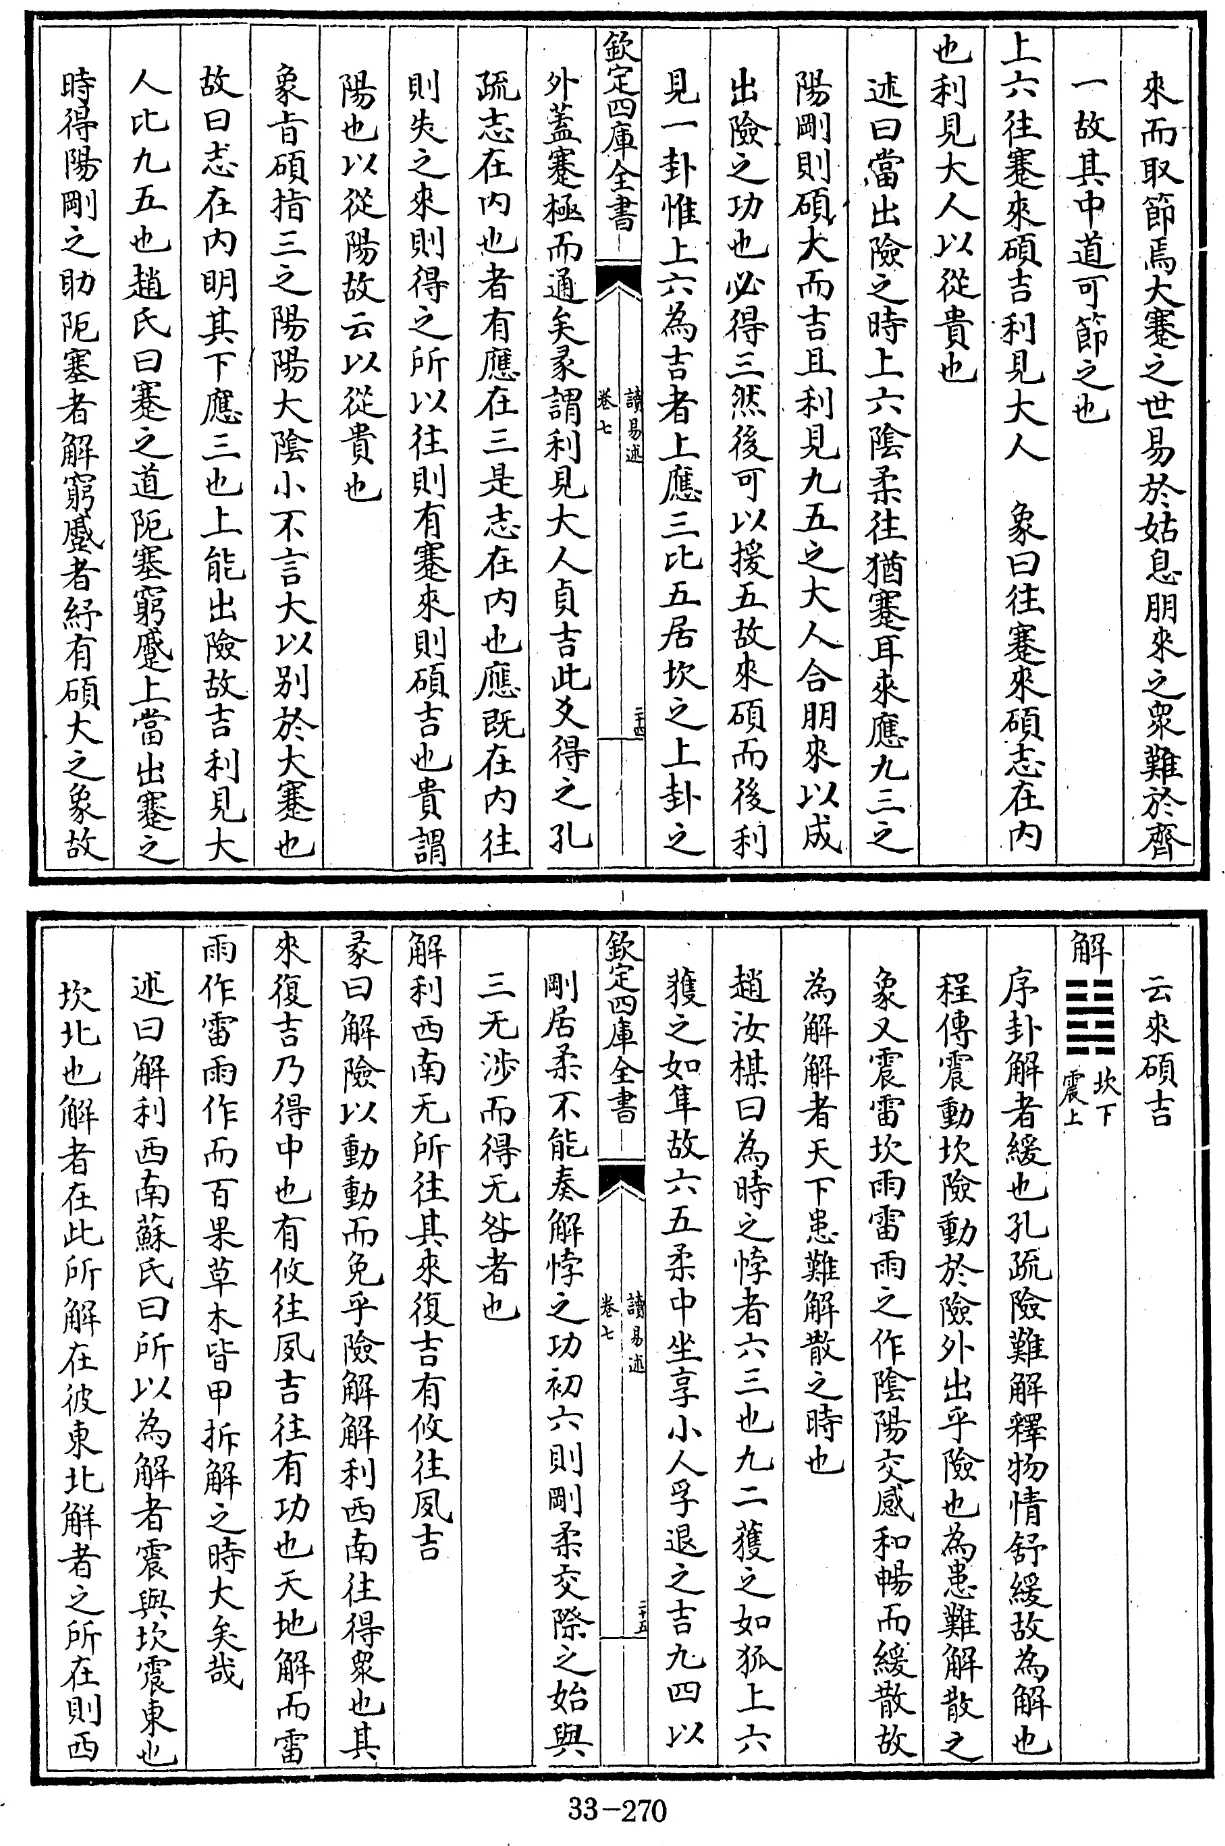 來而取節焉大蹇之世易於姑息朋來之衆難於齊
一故其中道可節之也
上六往蹇來碩吉利見大人　象曰往蹇來碩志在内
也利見大人以從貴也
述曰當出險之時上六陰柔往猶蹇耳來應九三之
陽剛則碩大而吉且利見九五之大人合朋來以成
出險之功也必得三然後可以援五故來碩而後利
見一卦惟上六為吉者上應三比五居坎之上卦之
欽定四庫全書
讀易述
卷七
二十四
外蓋蹇極而通矣彖謂利見大人貞吉此爻得之孔
疏志在内也者有應在三是志在内也應既在内往
則失之來則得之所以往則有蹇來則碩吉也貴謂
陽也以從陽故云以從貴也
象㫖碩指三之陽陽大陰小不言大以别於大蹇也
故曰志在内明其下應三也上能出險故吉利見大
人比九五也趙氏曰蹇之道阨塞窮蹙上當出蹇之
時得陽剛之助阨塞者解窮蹙者紓有碩大之象故
云來碩吉
解䷧坎下震上
序卦解者緩也孔疏險難解釋物情舒緩故為解也
程傳震動坎險動於險外出乎險也為患難解散之
象又震雷坎雨雷雨之作陰陽交感和暢而緩散故
為解解者天下患難解散之時也
趙汝楳曰為時之悖者六三也九二獲之如狐上六
獲之如隼故六五柔中坐享小人孚退之吉九四以
欽定四庫全書
讀易述
卷七
二十五
剛居柔不能奏解悖之功初六則剛柔交際之始與
三无涉而得无咎者也
解利西南无所往其來復吉有攸往夙吉
彖曰解險以動動而免乎險解解利西南往得衆也其
來復吉乃得中也有攸往夙吉往有功也天地解而雷
雨作雷雨作而百果草木皆甲拆解之時大矣哉
述曰解利西南蘇氏曰所以為解者震與坎震東也
坎北也解者在此所解在彼東北解者之所在則西
33-270